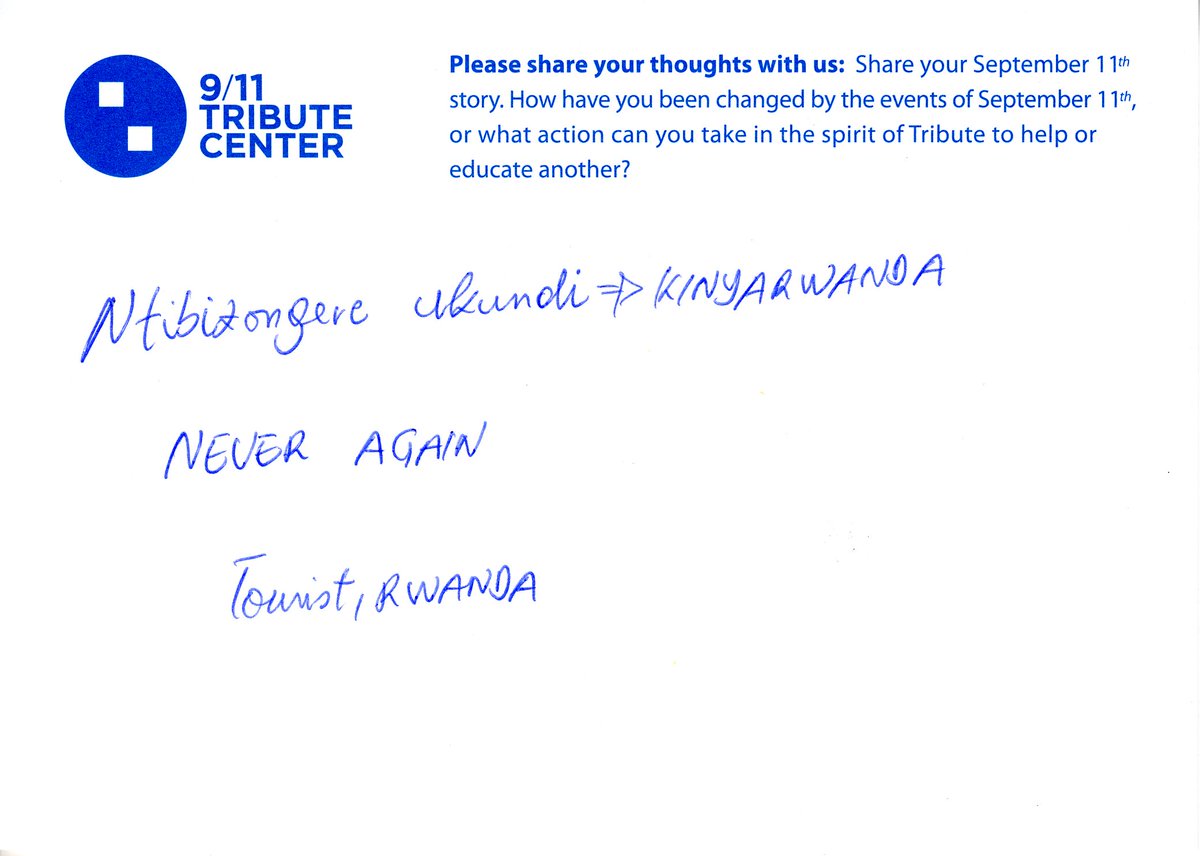 9/11
TRIBUTE
CENTER
Please share your thoughts with us: Share your September 11th
story. How have you been changed by the events of September 11th,
or what action can you take in the spirit of Tribute to help or
educate another?
Ntibizongere ukundi ⇒ KINYARWANDA
NEVER AGAIN
Tourist, RWANDA